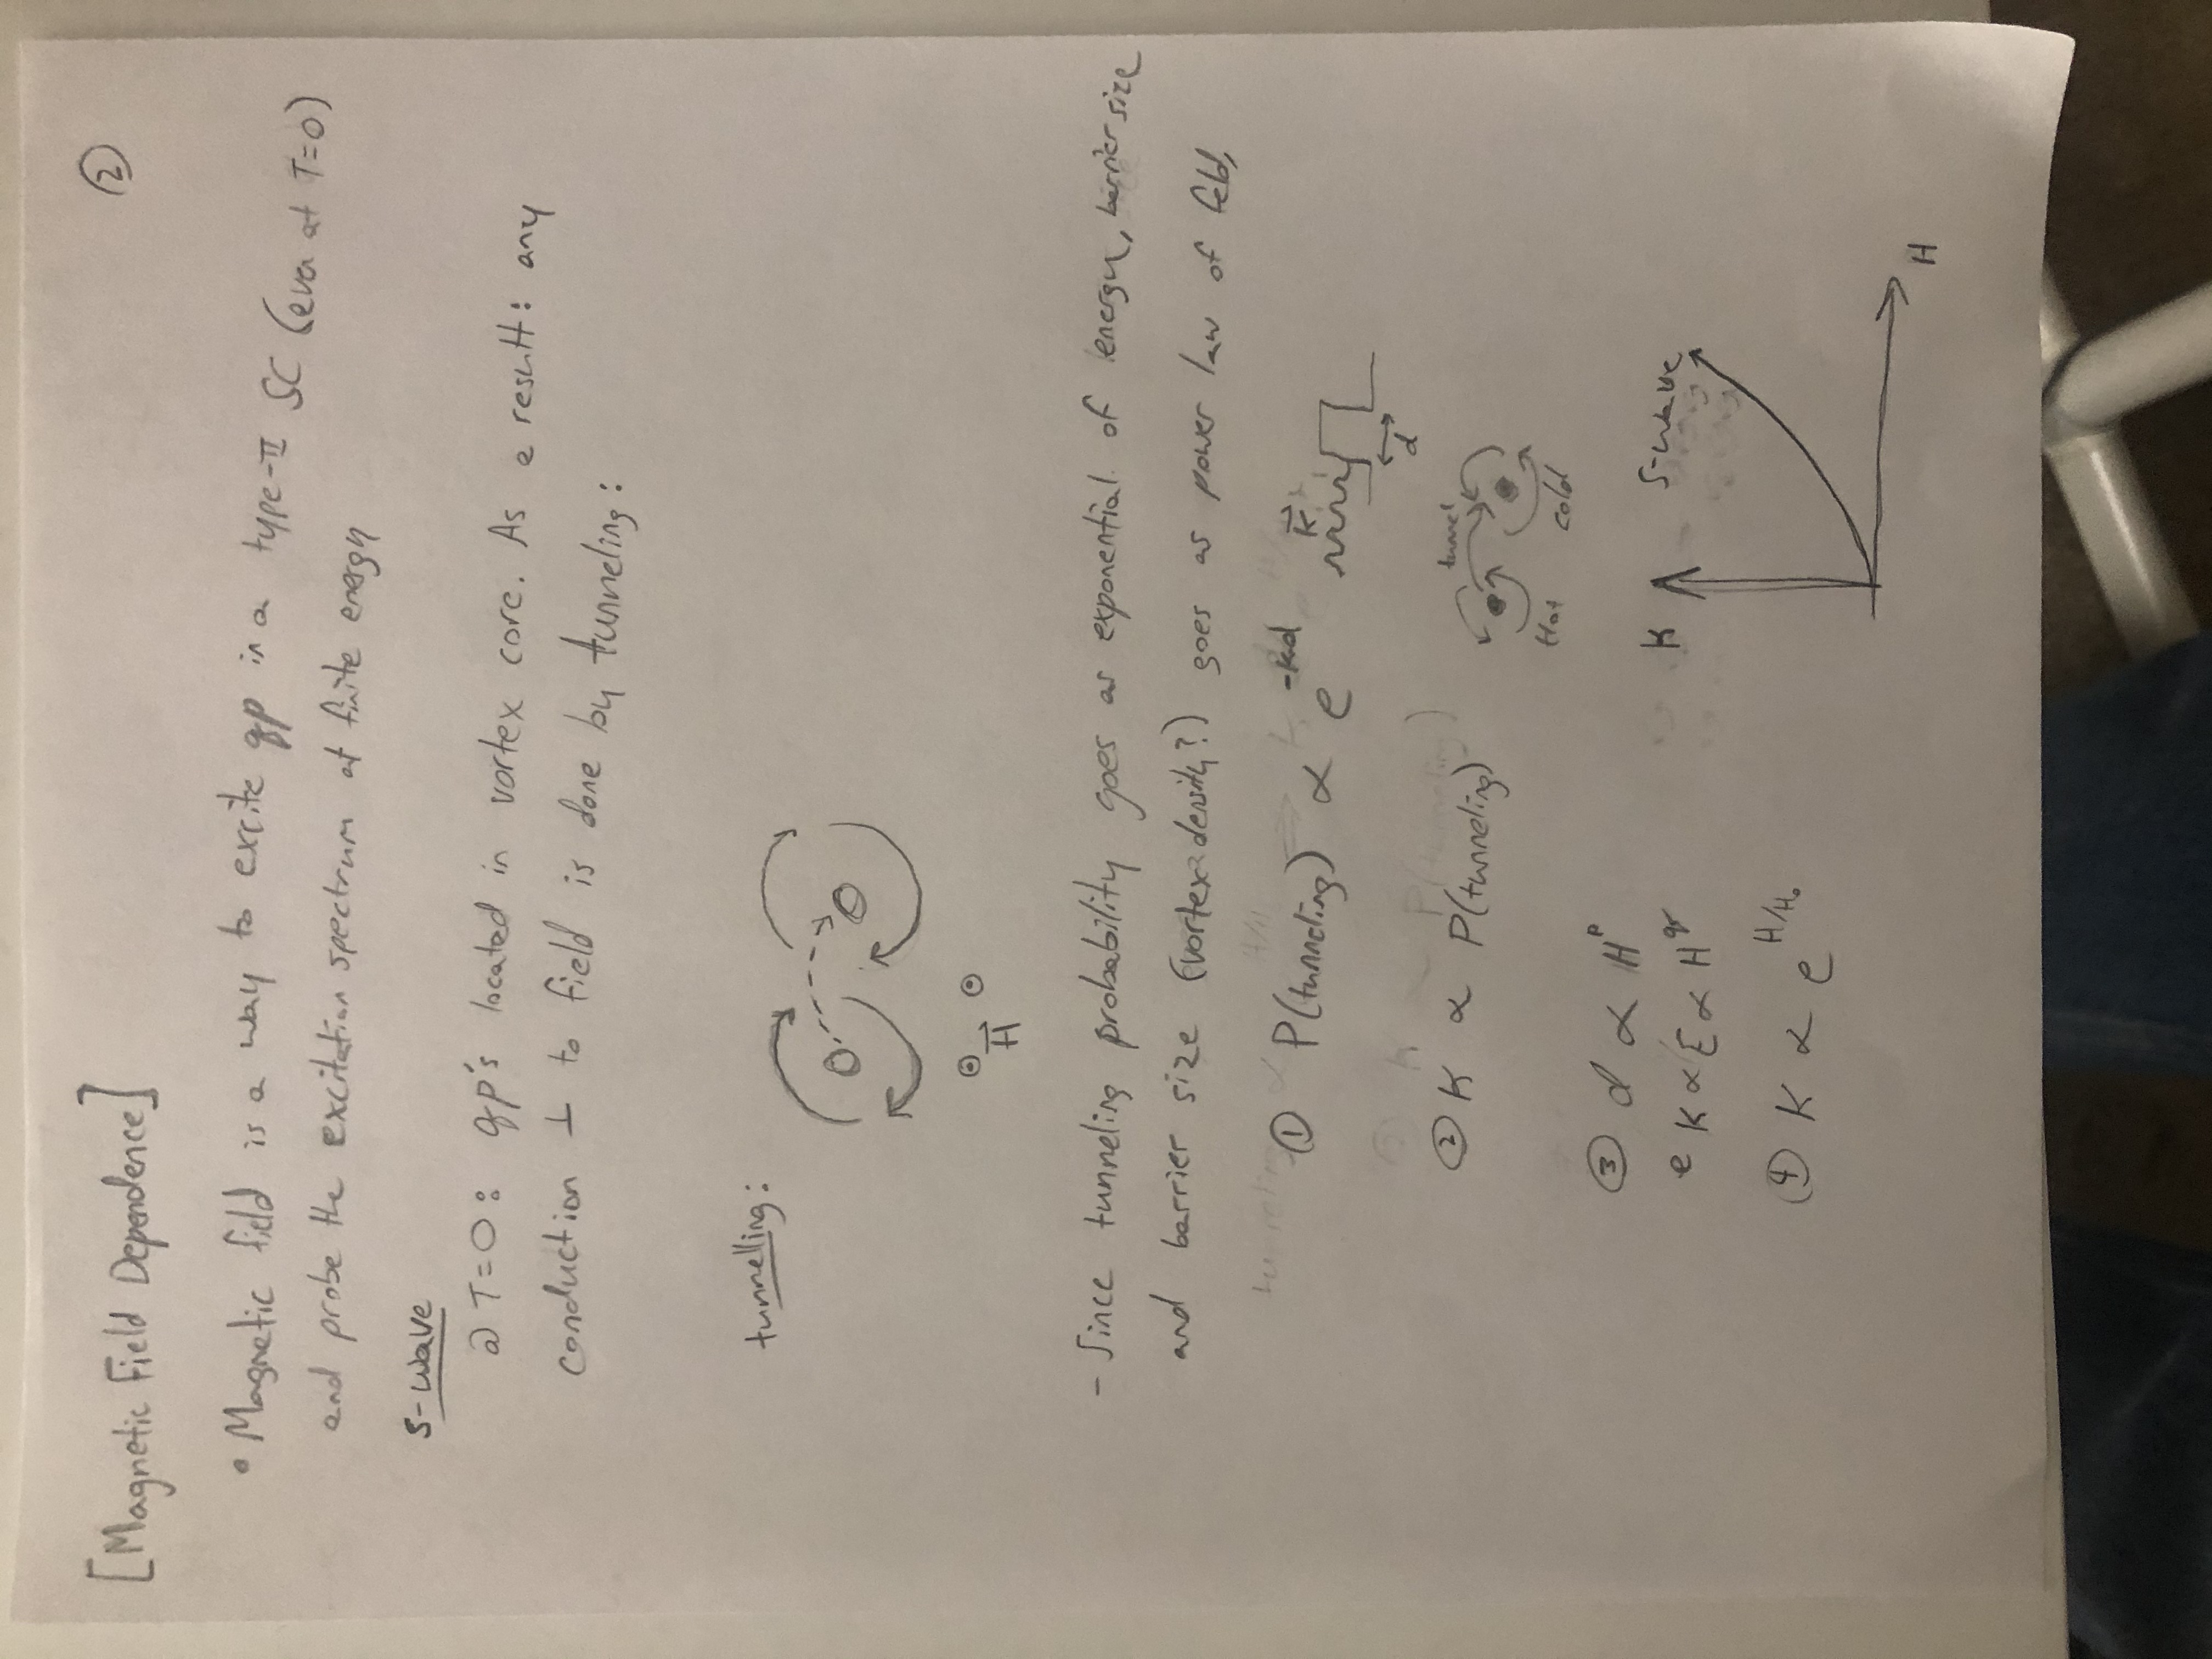 [Magnetic Field Dependence]
②
• Magnetic field is a way to excite qp in a type-II SC (even at T=0)
and probe the excitation spectrum at finite energy
s-wave
@ T=0: qp's located in vortex core. As a result: any
conduction ⊥ to field is done by tunneling:
tunnelling:
H⃗
- Since tunneling probability goes as exponential of energy, barrier size
and barrier size (vortex density?) goes as power law of feld,
① P(tunneling) ∝ e^-kd
k⃗
d
② K ∝ P(tunneling)
tunnel
Hot
cold
③ d ∝ H^p
K ∝ E ∝ H^q
④ K ∝ e^H/H₀
K
S-wave
H